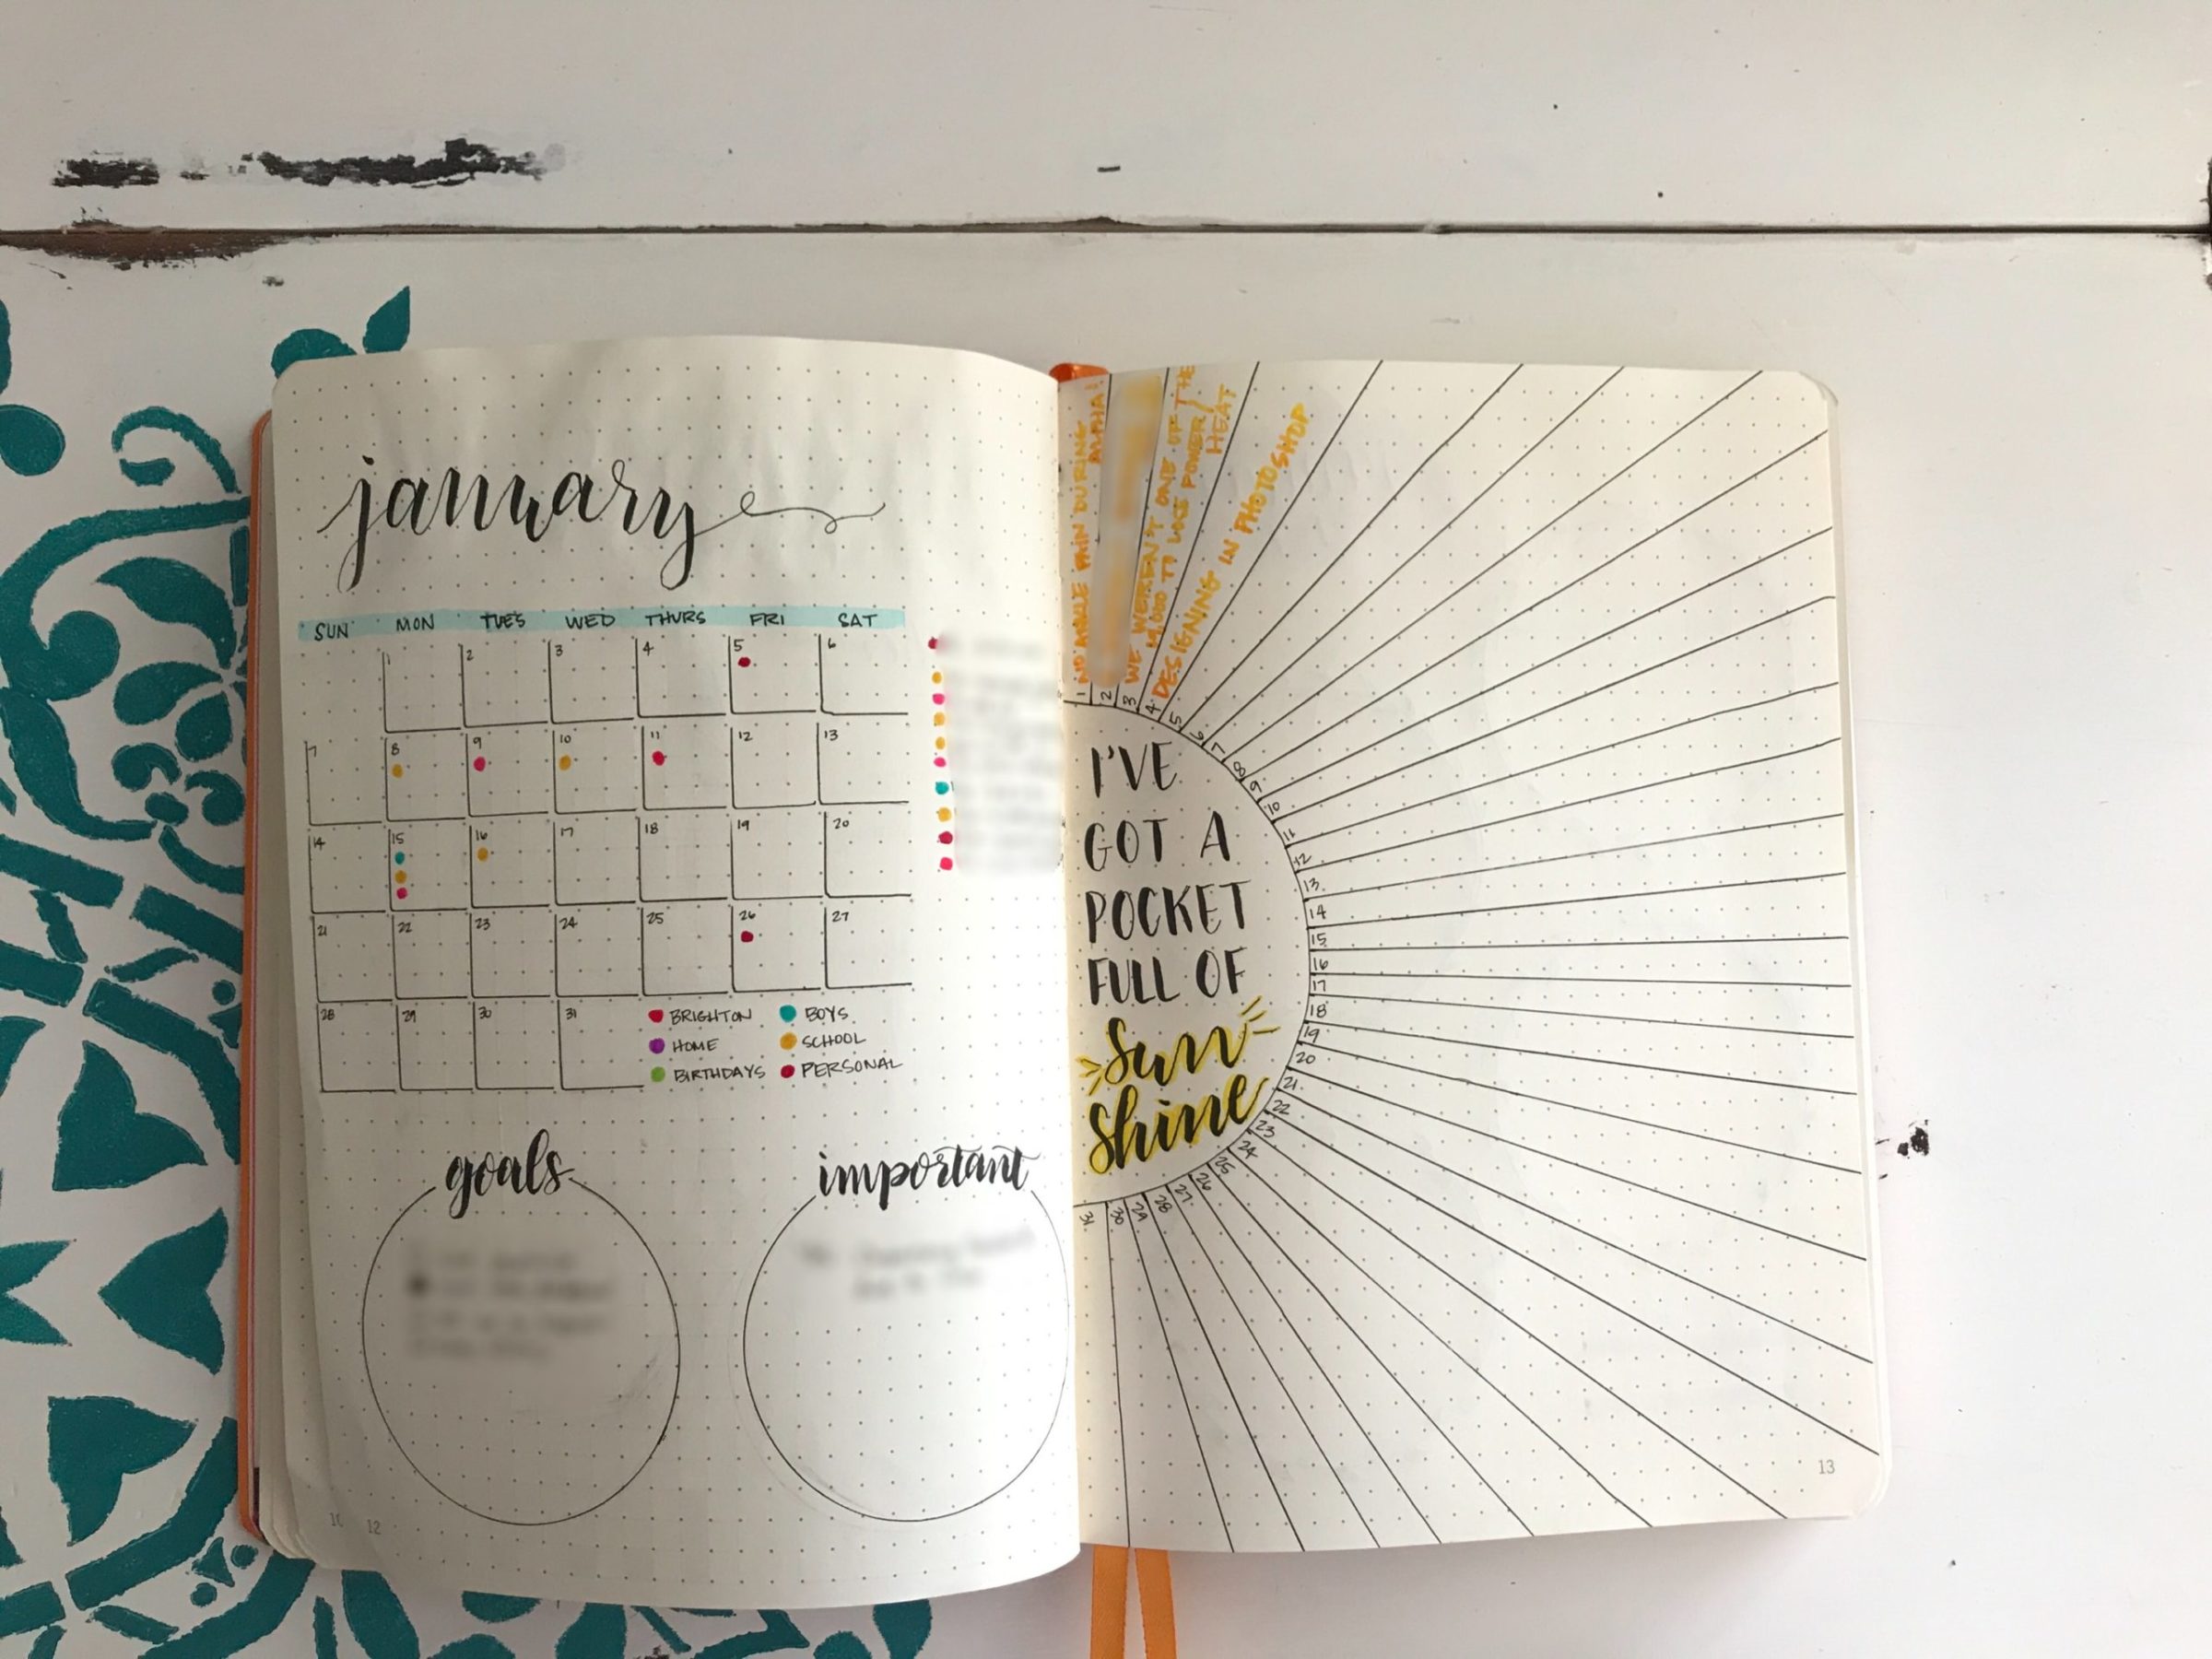 january
SUN MON TUES WED THURS FRI SAT
1 2 3 4 5 6
7 8 9 10 11 12 13
14 15 16 17 18 19 20
21 22 23 24 25 26 27
28 29 30 31
BRIGHTON BOYS
HOME SCHOOL
BIRTHDAYS PERSONAL
goals
important
12
NO ANKLE PAIN DURING
WE WEREN'T ONE OF THE
TO LOSS POWER/
HEAT
DESIGNING IN PHOTOSHOP
1
2
3
4
5
6
7
8
9
10
11
12
13
14
15
16
17
18
19
20
21
22
23
24
25
26
27
28
29
30
31
I'VE
GOT A
POCKET
FULL OF
Sun
Shine
13